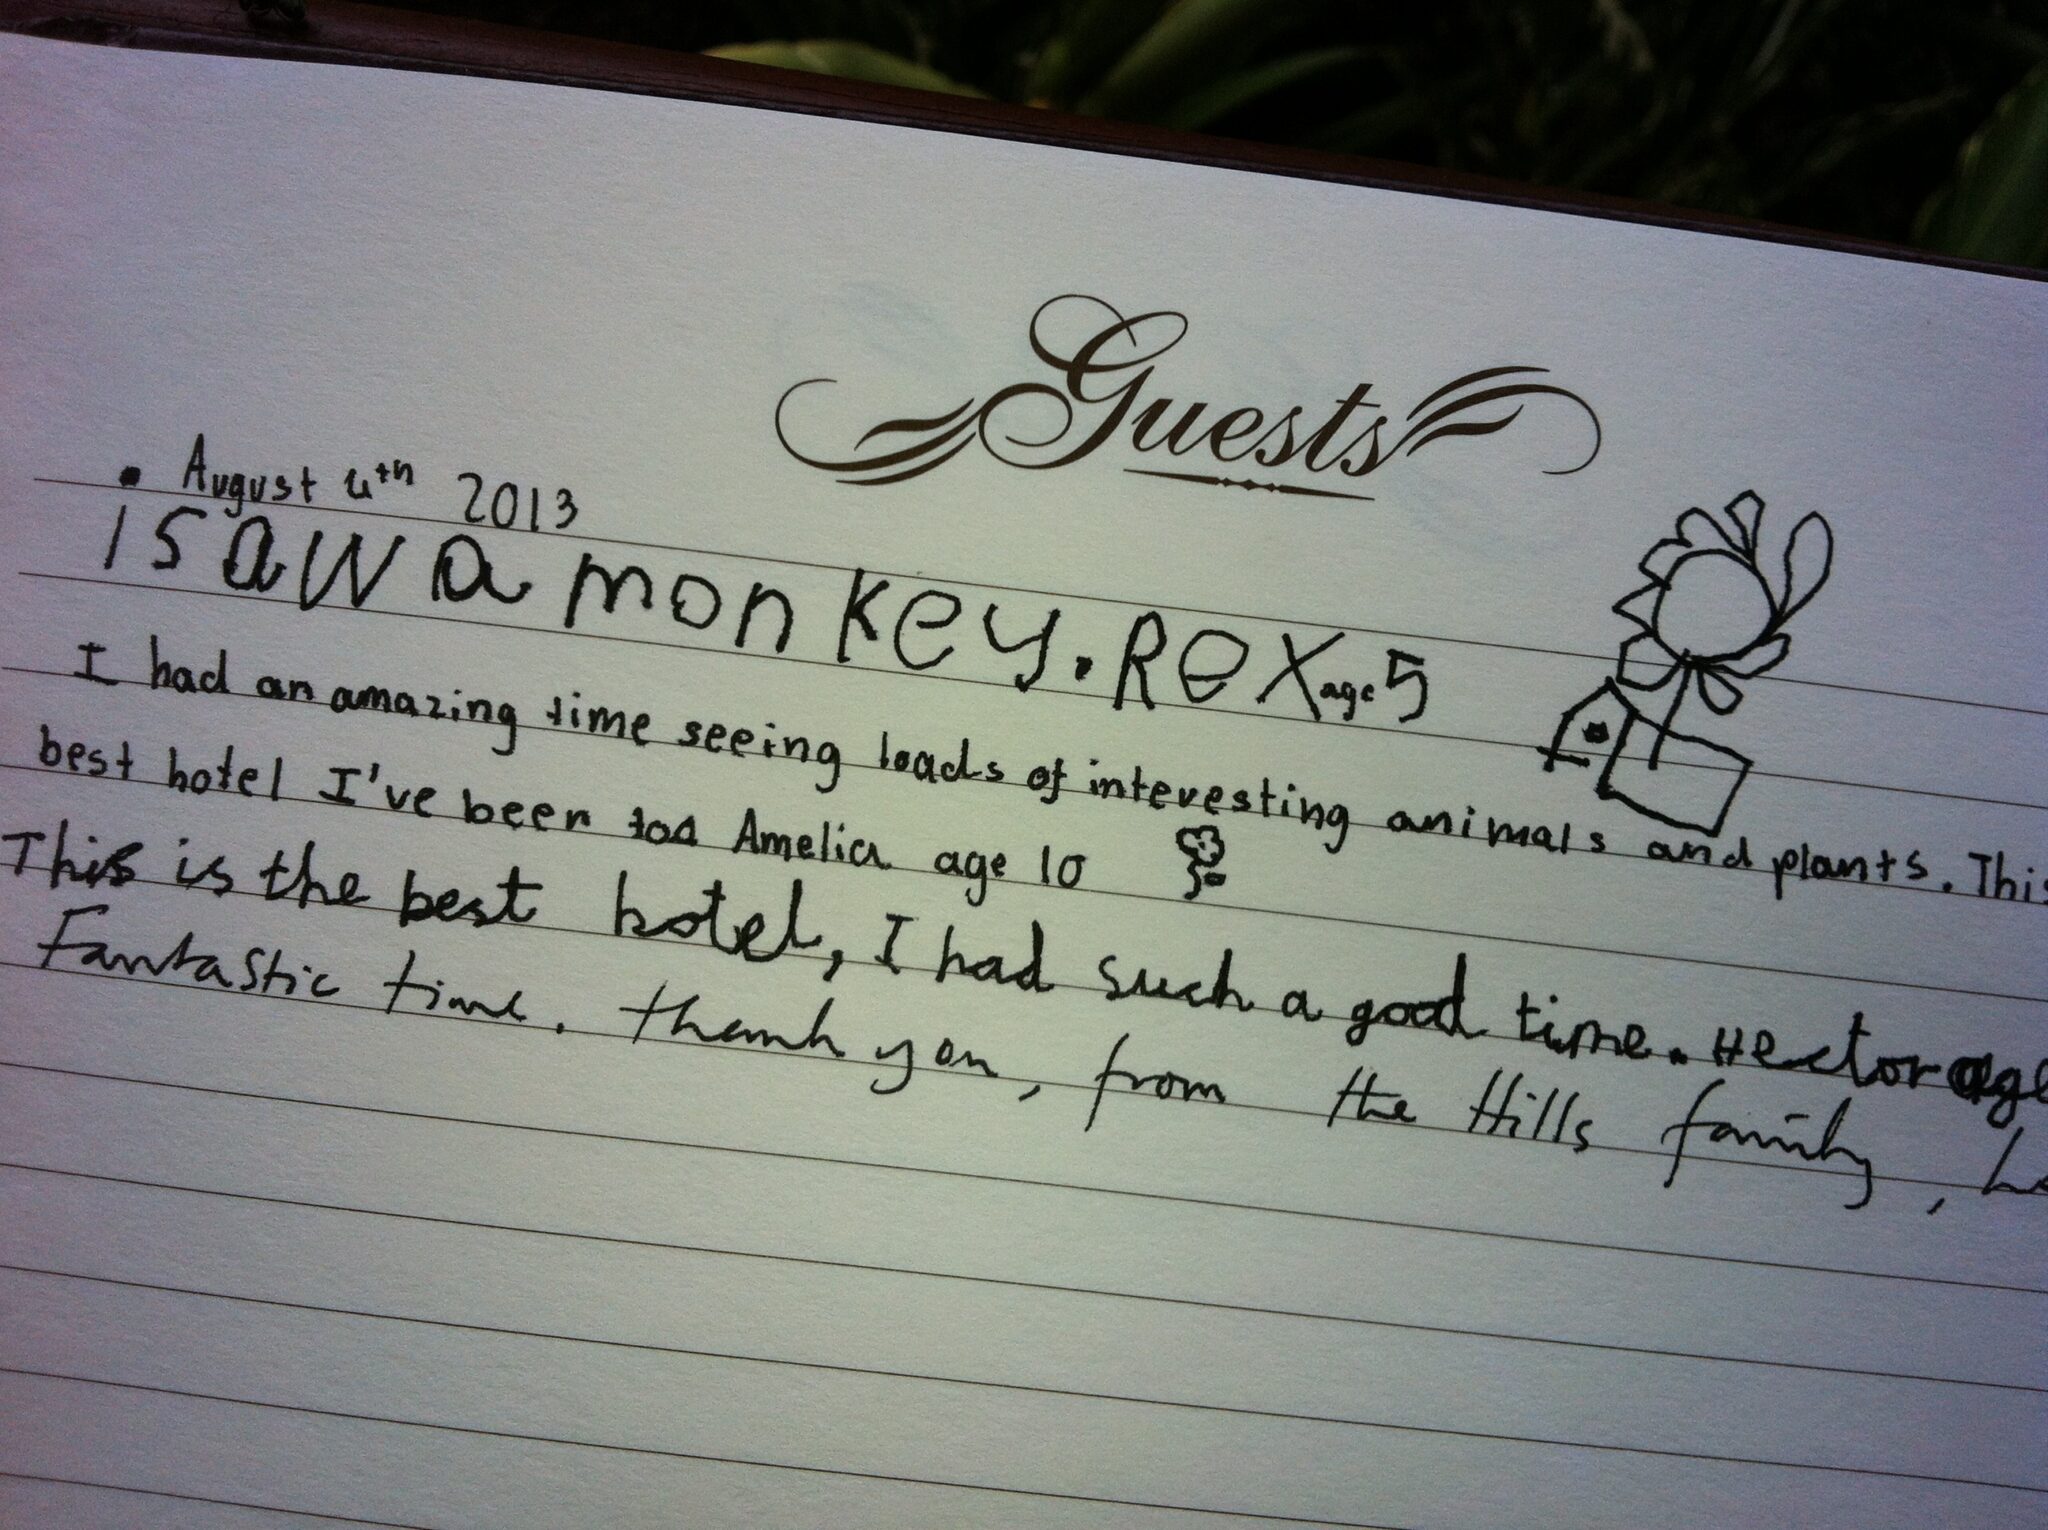 Guests
August 4th 2013
i saw a monkey. Rex age 5
I had an amazing time seeing loads of interesting animals and plants. This
best hotel I've been too Amelia age 10
This is the best hotel, I had such a good time. Hector age
Fantastic time. Thank you, from the Hills family,